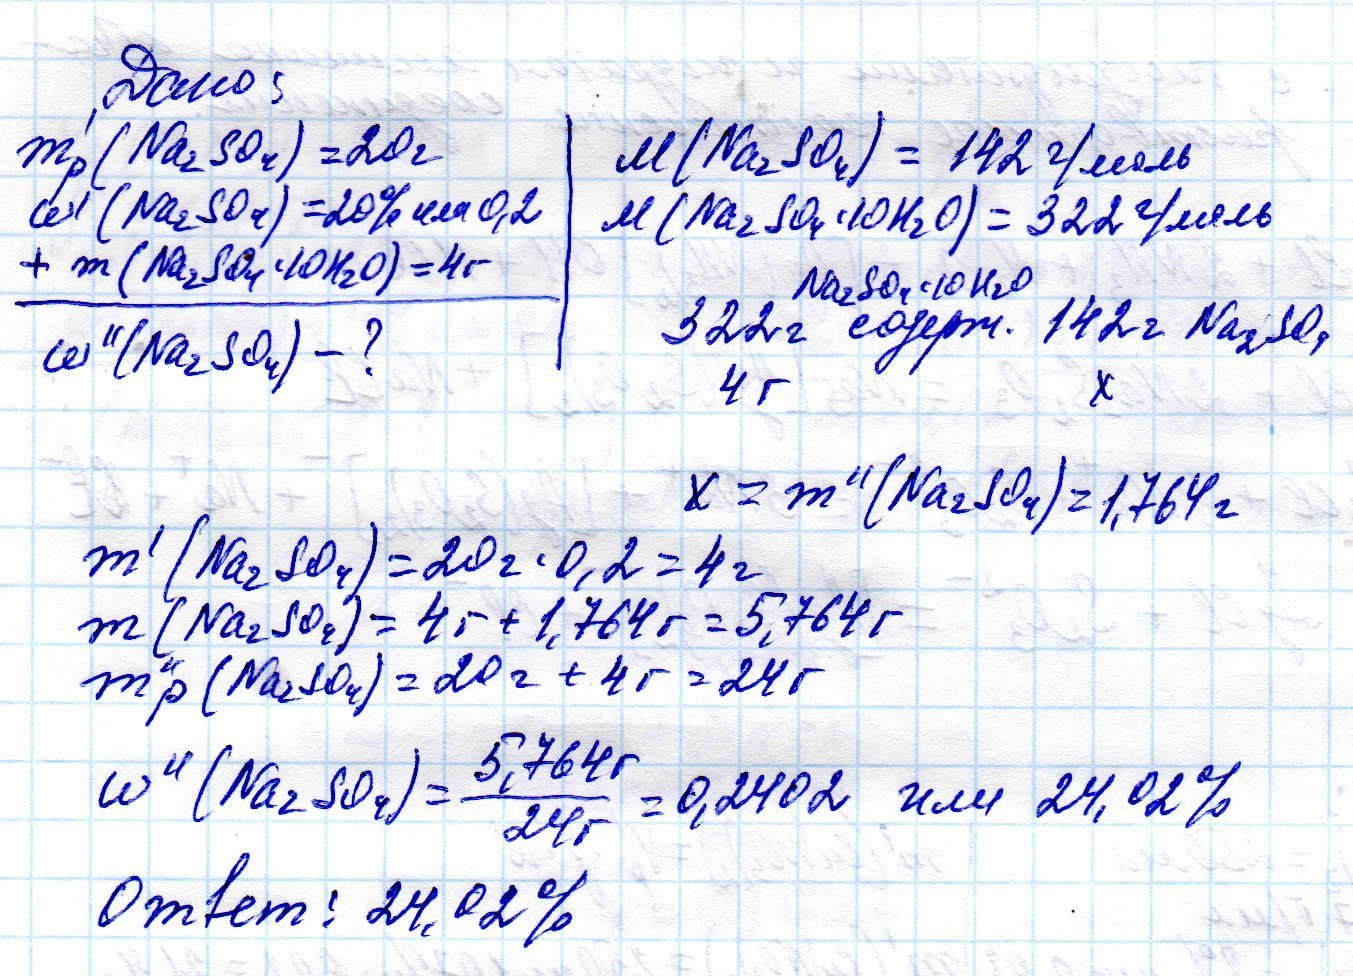 Дано:
m'р(Na₂SO₄)=20г
ω'(Na₂SO₄)=20% или 0,2
+ m(Na₂SO₄·10H₂O)=4г
ω"(Na₂SO₄) – ?
M(Na₂SO₄) = 142 г/моль
M(Na₂SO₄·10H₂O) = 322 г/моль
Na₂SO₄·10H₂O
322г содерж. 142г Na₂SO₄
4г x
x = m"(Na₂SO₄)=1,764г
m'(Na₂SO₄)=20г·0,2=4г
m(Na₂SO₄)=4г+1,764г=5,764г
m"р(Na₂SO₄)=20г+4г=24г
ω"(Na₂SO₄)=5,764г/24г=0,2402 или 24,02%
Ответ: 24,02%